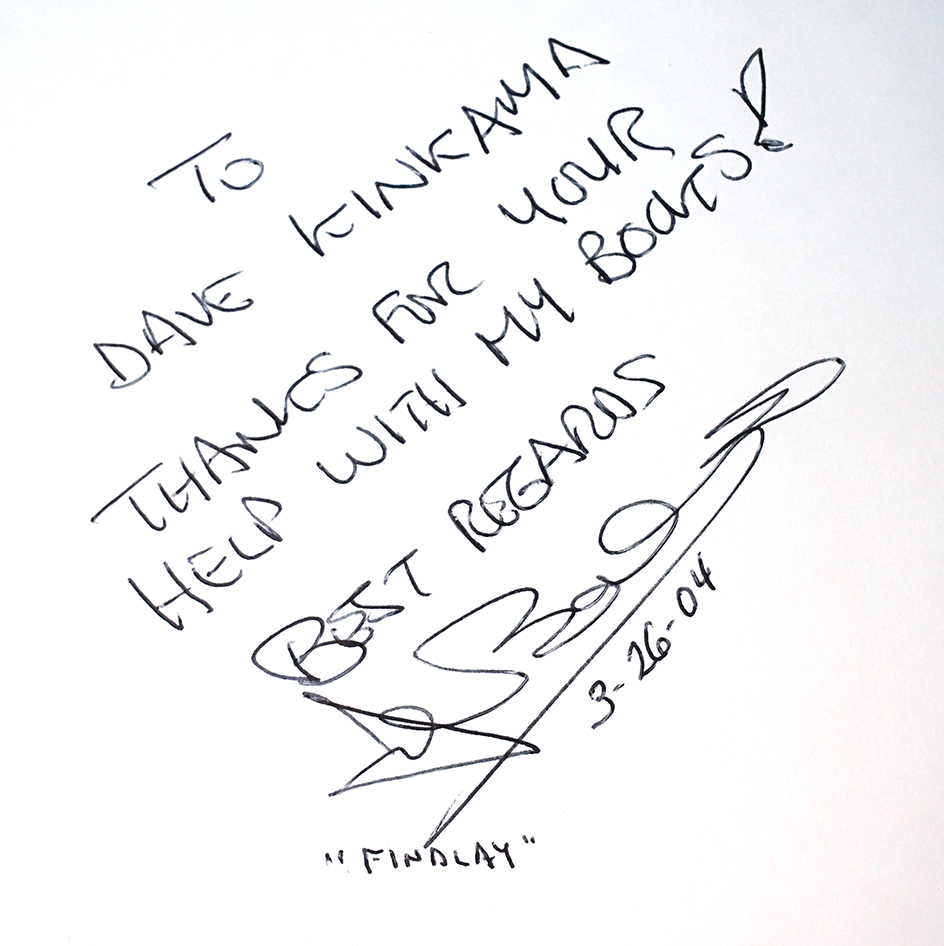 TO
DAVE KINKAMA
THANKS FOR YOUR
HELP WITH MY BOATS!
BEST REGARDS
3-26-04
"FINDLAY"